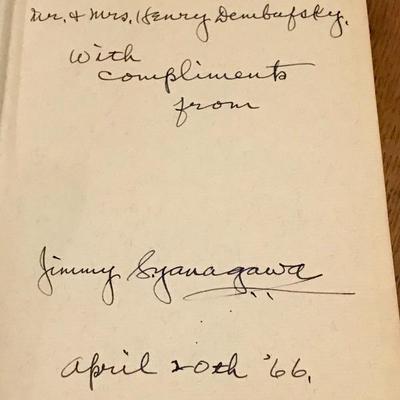 Mr. & Mrs. Henry Dembufsky.
With
compliments
from
Jimmy S. Yanagawa
April 20th '66.